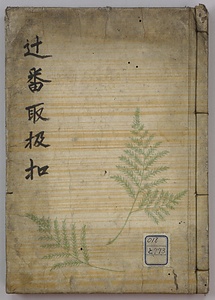 辻番取扱扣